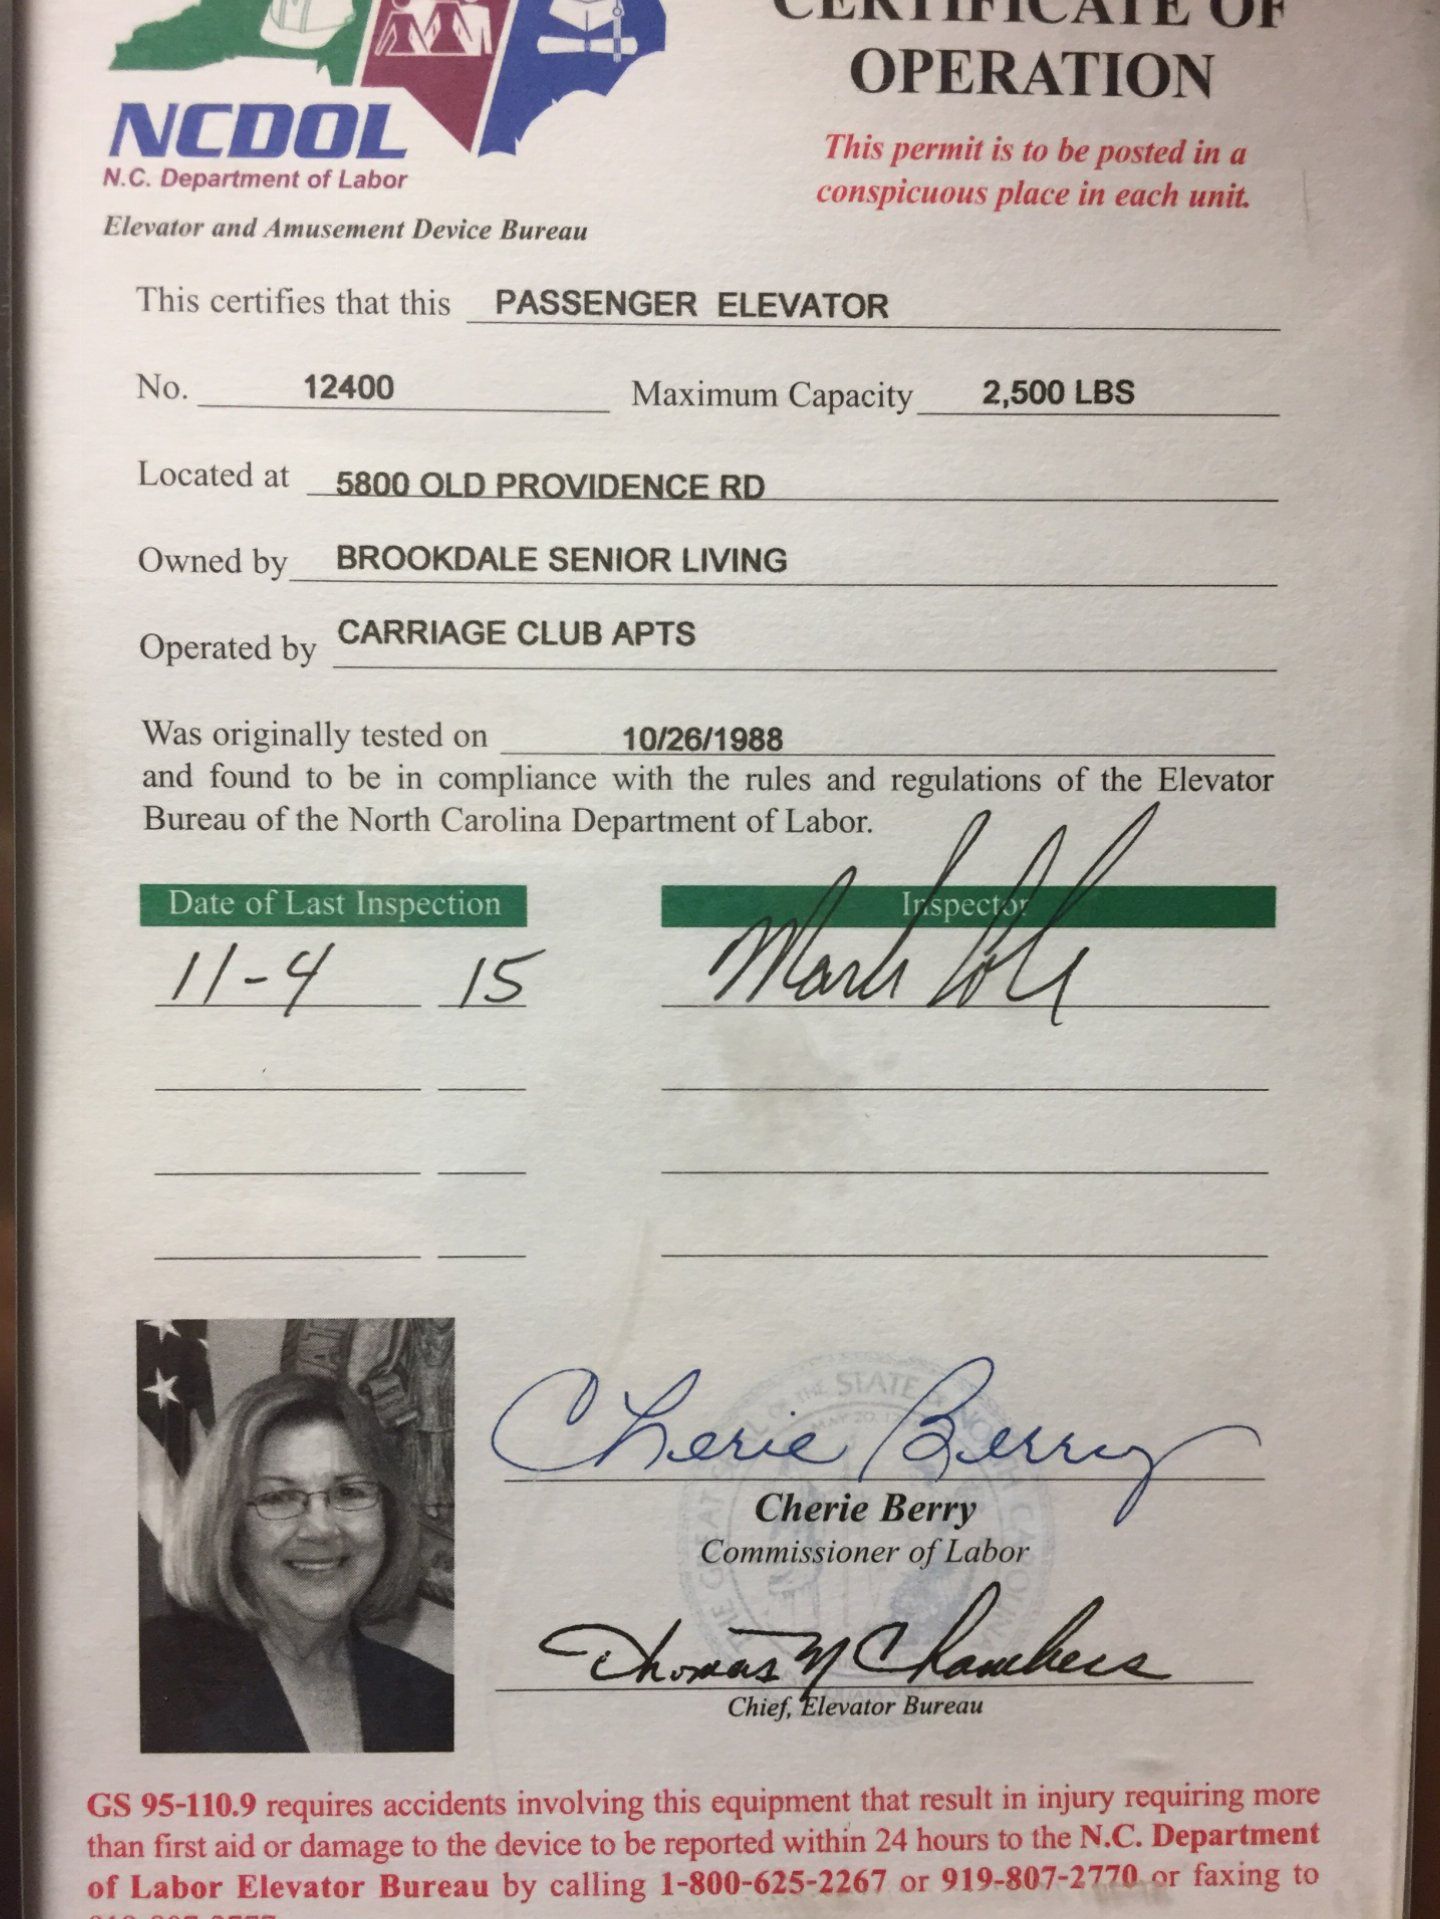 CERTIFICATE OF
OPERATION
This permit is to be posted in a
conspicuous place in each unit.
NCDOL
N.C. Department of Labor
Elevator and Amusement Device Bureau
This certifies that this PASSENGER ELEVATOR
No. 12400 Maximum Capacity 2,500 LBS
Located at 5800 OLD PROVIDENCE RD
Owned by BROOKDALE SENIOR LIVING
Operated by CARRIAGE CLUB APTS
Was originally tested on 10/26/1988
and found to be in compliance with the rules and regulations of the Elevator
Bureau of the North Carolina Department of Labor.
Date of Last Inspection Inspector
11-4 15 Mark
Cherie Berry
Cherie Berry
Commissioner of Labor
Thomas N Chambers
Chief, Elevator Bureau
GS 95-110.9 requires accidents involving this equipment that result in injury requiring more
than first aid or damage to the device to be reported within 24 hours to the N.C. Department
of Labor Elevator Bureau by calling 1-800-625-2267 or 919-807-2770 or faxing to